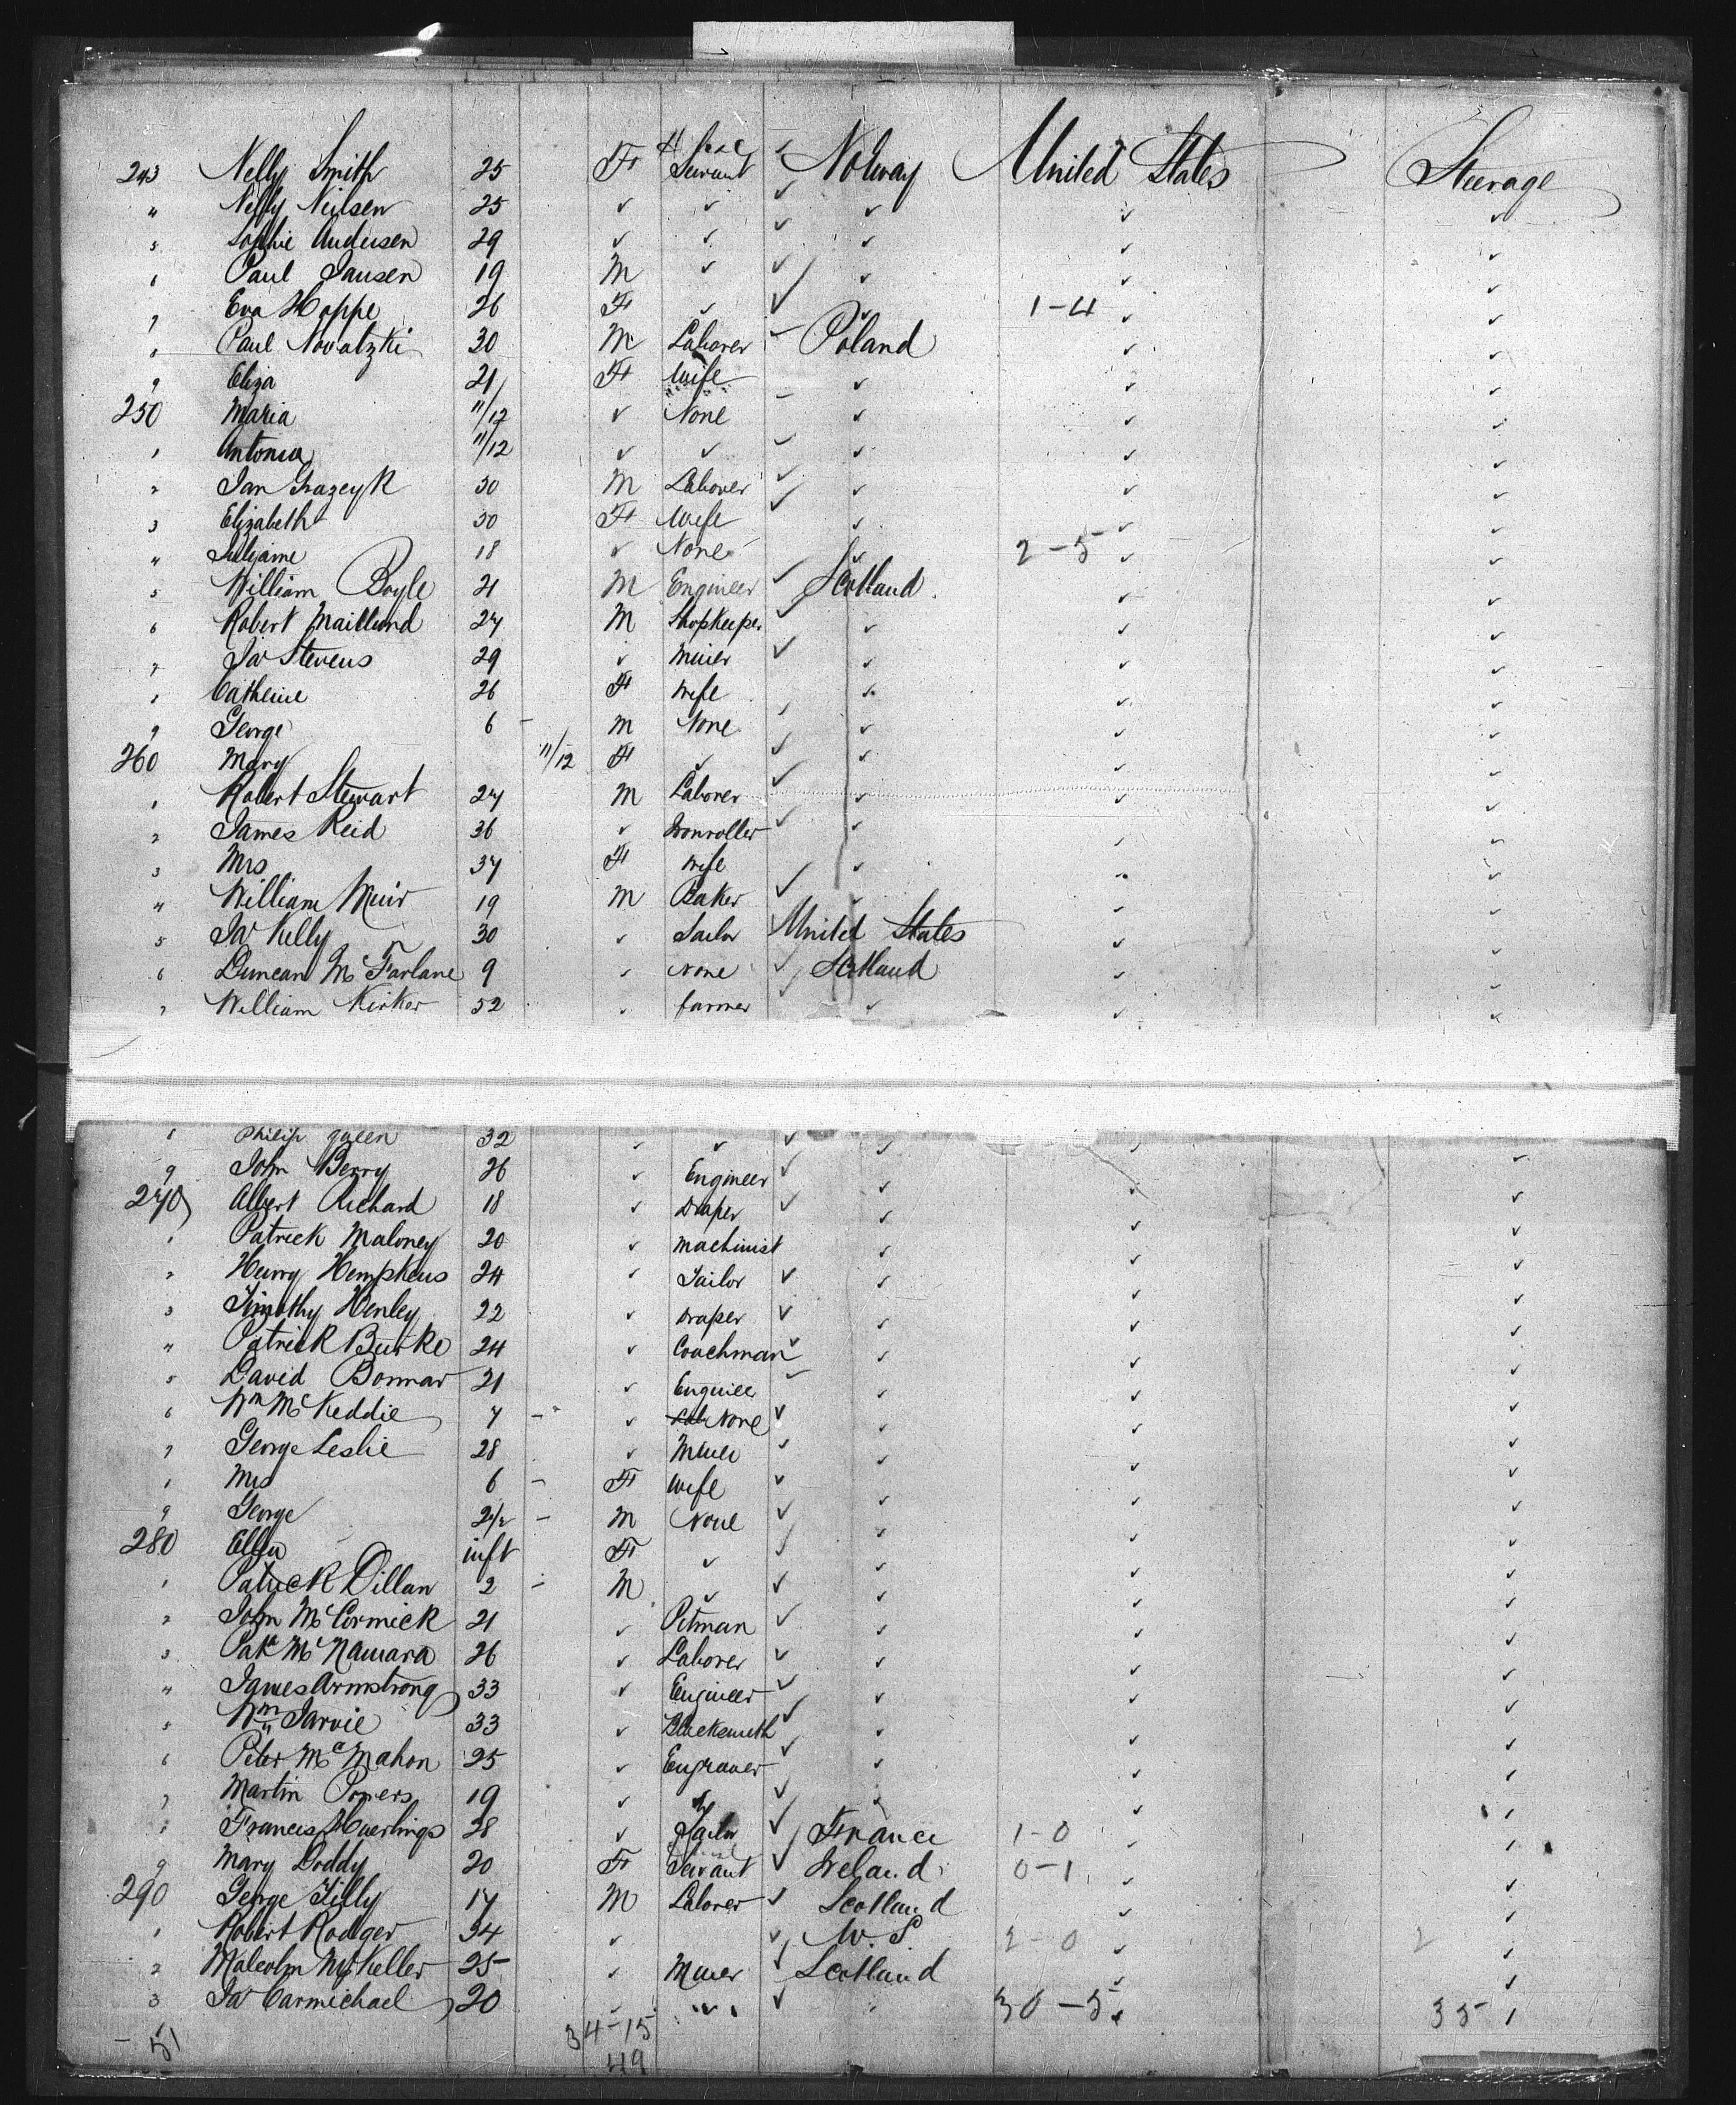 243 Nelly Smith 25 F H. Servant Norway United States Steerage
4 Nelly Neilsen 25 ✓ ✓ ✓ ✓ ✓
5 Sophie Andersen 29 ✓ ✓ ✓ ✓ ✓
6 Paul Jansen 19 M ✓ ✓ ✓ ✓
7 Eva Hoppe 26 F ✓ ✓ 1-4 ✓ ✓
8 Paul Novatzki 30 M Laborer Poland ✓ ✓
9 Eliza 21 F Wife ✓ ✓ ✓
250 Maria 11/12 ✓ None ✓ ✓ ✓
1 Antonia 11/12 ✓ ✓ ✓ ✓ ✓
2 Jan 30 M Laborer ✓ ✓ ✓
3 Elizabeth 30 F Wife ✓ ✓ ✓
4 18 ✓ None ✓ 2-5 ✓ ✓
5 William Boyle 21 M Engineer Scotland ✓ ✓
6 Robert Maitland 27 M Shopkeeper ✓ ✓ ✓
7 Jas Stevens 29 ✓ Miner ✓ ✓ ✓
8 Catherine 26 F Wife ✓ ✓ ✓
9 George 6 - M None ✓ ✓ ✓
260 Mary 11/12 F ✓ ✓ ✓ ✓
1 Robert Stewart 27 M Laborer ✓ ✓ ✓
2 James Reid 36 ✓ Ironroller ✓ ✓ ✓
3 Mrs 37 F Wife ✓ ✓ ✓
4 William Muir 19 M Baker ✓ ✓ ✓
5 Jas Kelly 30 ✓ Sailor United States ✓ ✓
6 Duncan McFarlane 9 ✓ None Scotland ✓ ✓
7 William Kirker 52 ✓ farmer ✓ ✓ ✓
8 Philip Queen 32 ✓ ✓ ✓ ✓ ✓
9 John Berry 26 ✓ Engineer ✓ ✓ ✓
270 Albert Richard 18 ✓ Draper ✓ ✓ ✓
1 Patrick Maloney 20 ✓ Machinist ✓ ✓ ✓
2 Henry Hempkens 24 ✓ Tailor ✓ ✓ ✓
3 Timothy Henley 22 ✓ Draper ✓ ✓ ✓
4 Patrick Burke 24 ✓ Coachman ✓ ✓ ✓
5 David Bonnar 21 ✓ Engineer ✓ ✓ ✓
6 Wm McKeddie 7 - ✓ None ✓ ✓ ✓
7 George Leslie 28 ✓ Miner ✓ ✓ ✓
8 Mrs 6 - F Wife ✓ ✓ ✓
9 George 2 1/2 - M None ✓ ✓ ✓
280 inft F ✓ ✓ ✓ ✓
1 Patrick Dillan 2 - M ✓ ✓ ✓ ✓
2 John McCormick 21 ✓ Pitman ✓ ✓ ✓
3 Patk McNamara 26 ✓ Laborer ✓ ✓ ✓
4 James Armstrong 33 ✓ Engineer ✓ ✓ ✓
5 Wm Jarvie 33 ✓ Blacksmith ✓ ✓ ✓
6 Peter McMahon 25 ✓ Engraver ✓ ✓ ✓
7 Martin Powers 19 ✓ ✓ ✓ ✓
8 Francis Huerlings 28 ✓ Tailor France 1-0 ✓ ✓
9 Mary Doddy 20 F Servant Ireland 0-1 ✓ ✓
290 George Tilly 17 M Laborer Scotland ✓ ✓
1 Robert Rodger 34 ✓ U.S. 2-0 ✓ 2 ✓
2 Malcolm McKellar 25 ✓ Miner Scotland ✓ ✓
3 Jas Carmichael 20 ✓ " " 30-5 ✓ 35
51 34-15
49